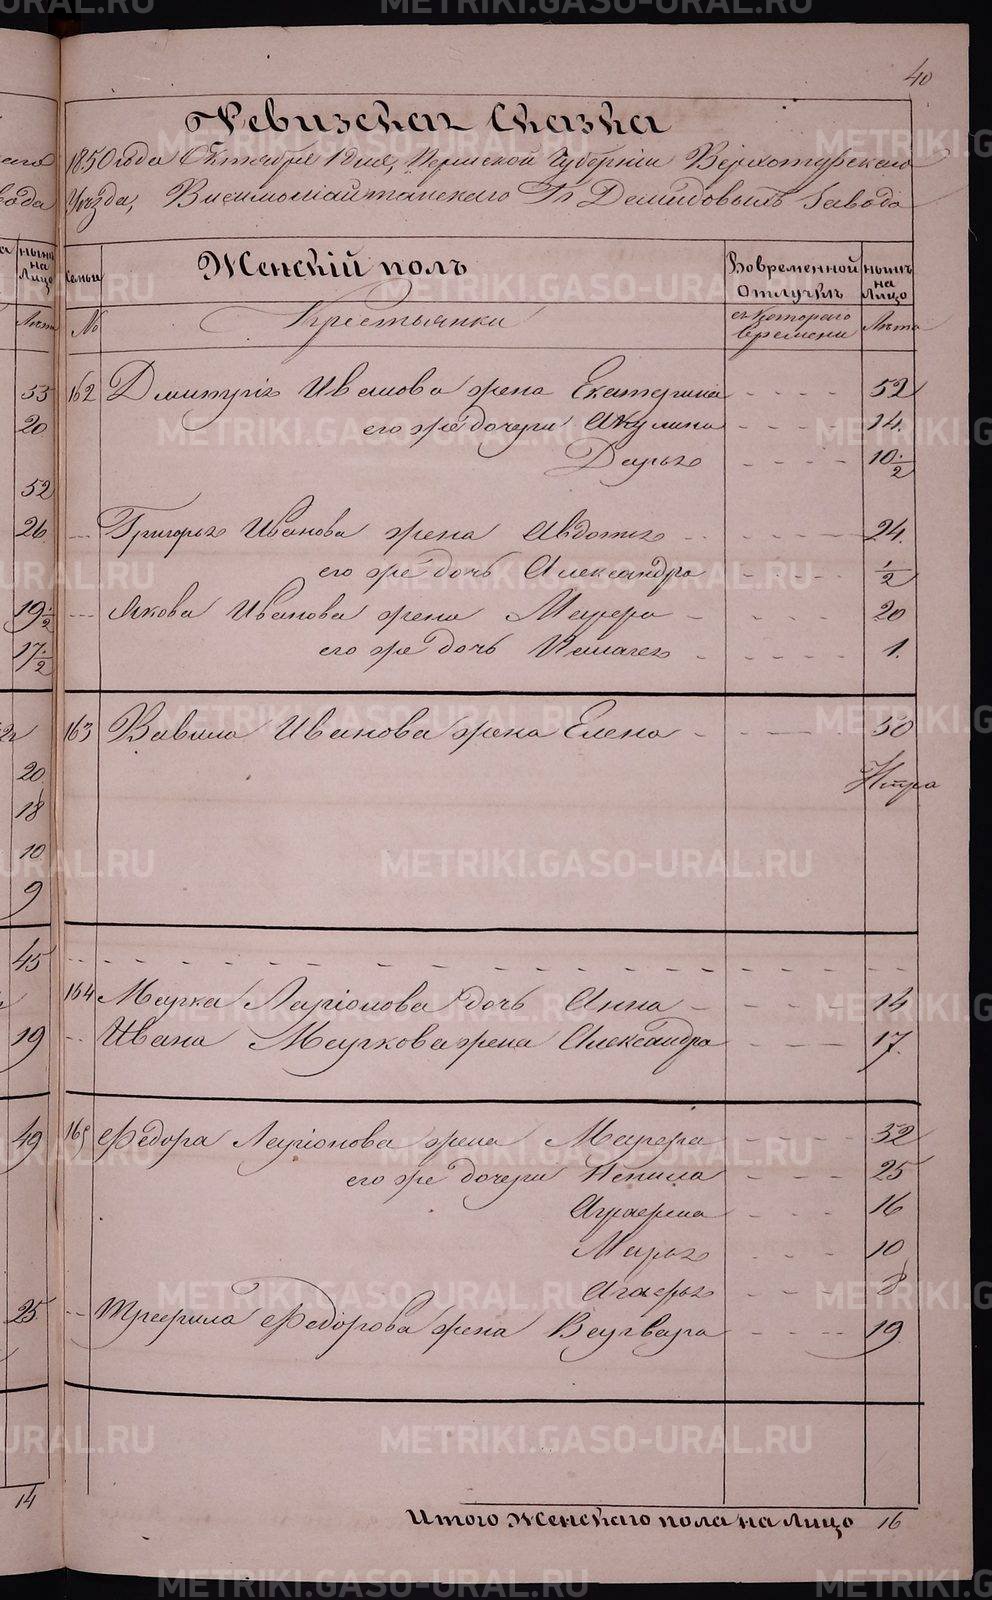 40
Ревизская Сказка
1850 года Октября 12 дня, Пермской Губерніи Верхотурского
Уѣзда, Висимошайтанскаго Гг Демидовыхъ Завода
Семьи Женскій полъ Вовременной Отлучкѣ нынѣ на Лицо
№ Крестьянки съ котораго времени Лѣта
162 Дмитрія Иванова жена Екатерина 52
его же дочери Акулина 14.
Дарья 10 1/2
Григорья Иванова жена Авдотья 24.
его же дочь Александра 1/2
Якова Иванова жена Марфа 20
его же дочь 1.
163 Вавила Иванова жена Елена 50
164 Марка Ларіонова дочь Анна 14
Ивана Маркова жена Александра 17.
165 Федора Ларіонова жена Марфа 52
его же дочери Ненила 25
Аграфена 16
Марья 10
Агафья 8
Трефила Федорова жена Варвара 19
Итого Женскаго пола на Лицо 16
53
20
52
26
19 1/2
17 1/2
20
18
10
9
45
19
49
25
14
METRIKI.GASO-URAL.RU